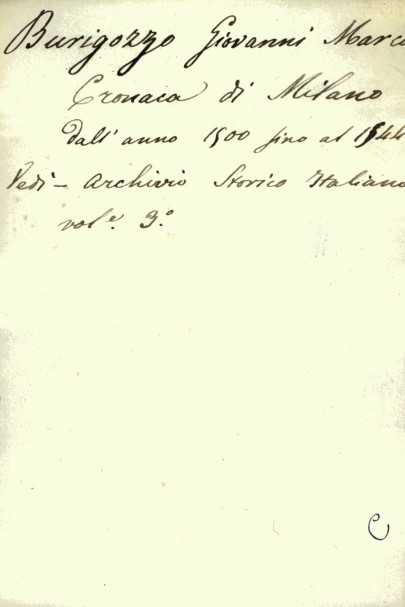 Burigozzo Giovanni Marco
Cronaca di Milano
dall' anno 1500 sino al 1544
Vedi - Archivio Storico Italiano
vol.e 3.o
C